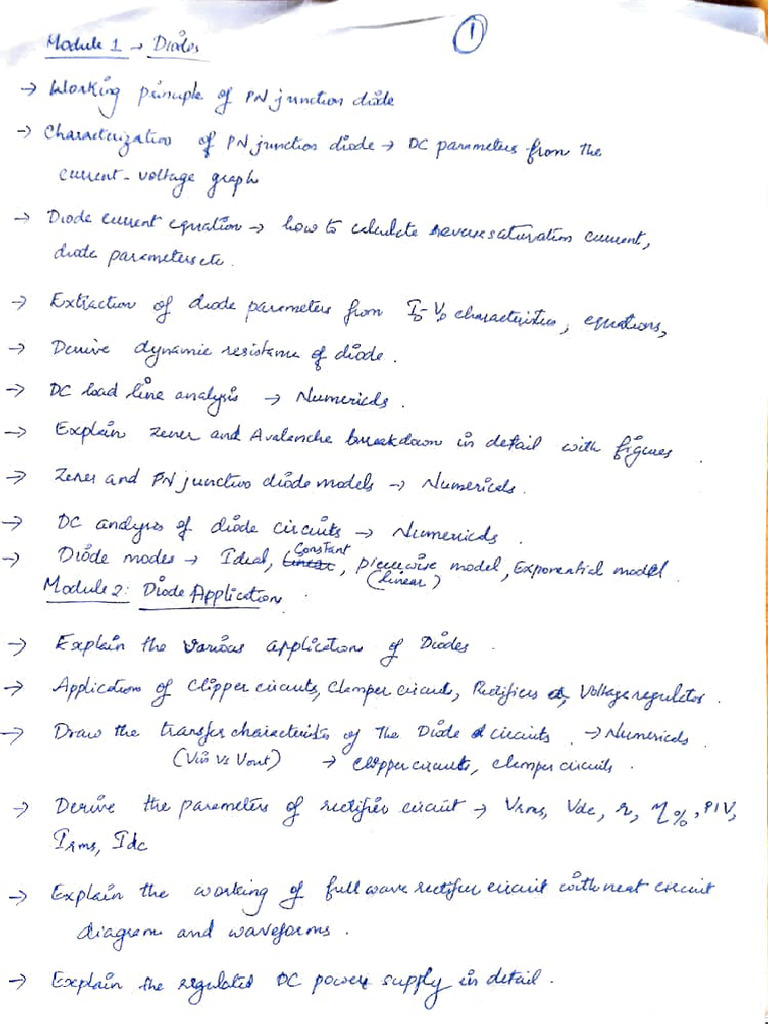 1
Module 1 → Diodes
→ Working principle of PN junction diode
→ Characterization of PN junction diode → DC parameters from the
current-voltage graph
→ Diode current equation → how to calculate reverse saturation current,
diode parameters etc.
→ Extraction of diode parameters from I_D-V_D characteristics, equations,
→ Derive dynamic resistance of diode.
→ DC load line analysis → Numericals.
→ Explain zener and Avalanche breakdown in detail with figures.
→ Zener and PN junction diode models → Numericals.
→ DC analysis of diode circuits → Numericals.
→ Diode modes → Ideal, Constant, piecewise model, Exponential model.
(linear)
Module 2: Diode Application
→ Explain the various applications of Diodes.
→ Application of Clipper circuits, Clamper circuit, Rectifiers, Voltage regulator.
→ Draw the transfer characteristics of the Diode circuits. → Numericals.
(Vin vs Vout) → Clipper circuits, clamper circuits.
→ Derive the parameters of rectifier circuit → Vrms, Vdc, r, η%, PIV,
Irms, Idc
→ Explain the working of full wave rectifier circuit with neat circuit
diagram and waveforms.
→ Explain the regulated DC power supply in detail.